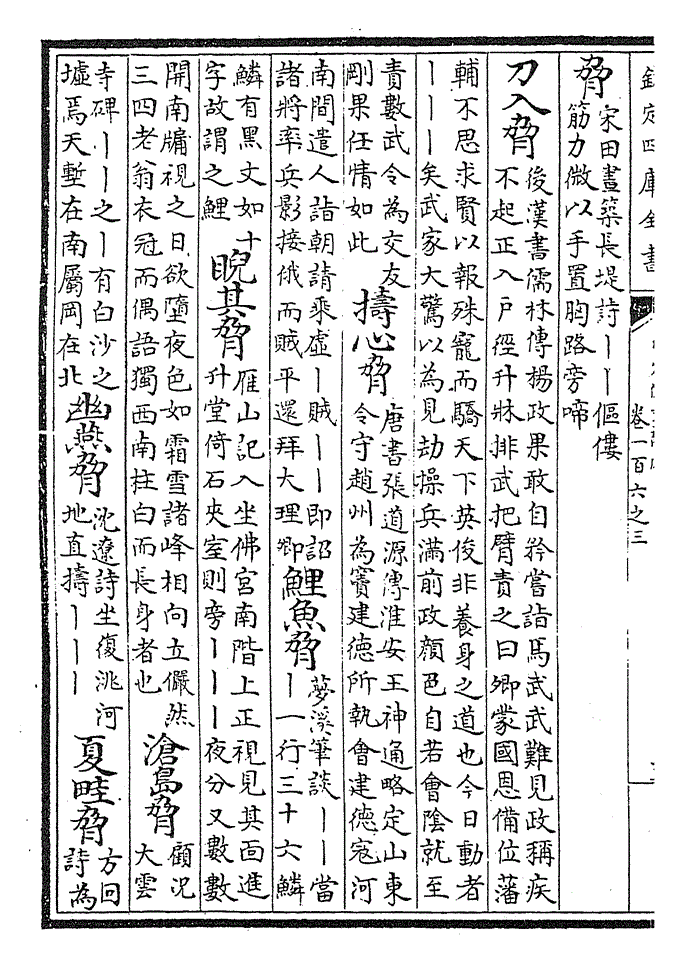 欽定四庫全書
卷一百六之三
脅
宋田晝築長堤詩丨丨傴僂
筋力微以手置胸路旁啼
刀入脅
後漢書儒林傳楊政果敢自矜嘗詣馬武武難見政稱疾
不起正入戶徑升牀排武把臂責之曰卿蒙國恩備位藩
輔不思求賢以報殊寵而驕天下英俊非養身之道也今日動者
丨丨丨矣武家大驚以為見劫操兵滿前政顏色自若會陰就至
責數武令為交友
剛果任情如此
擣心脅
唐書張道源傳淮安王神通略定山東
令守趙州為竇建德所執會建德寇河
南間遣人詣朝請乘虛丨賊丨丨即詔
諸將率兵影接俄而賊平還拜大理卿
鯉魚脅
夢溪筆談丨丨當
丨一行三十六鱗
鱗有黑文如十
字故謂之鯉
睨其脅
雁山記入坐佛宮南階上正視見其面進
升堂倚石夾室則旁丨丨丨夜分又數數
開南牖視之日欲墮夜色如霜雪諸峰相向立儼然
三四老翁衣冠而偶語獨西南柱白而長身者也
滄島脅
顧況
大雲
寺碑丨丨之丨有白沙之
墟焉天塹在南屬岡在北
幽燕脅
沈遼詩坐復洮河
地直擣丨丨丨
夏畦脅
方回
詩為